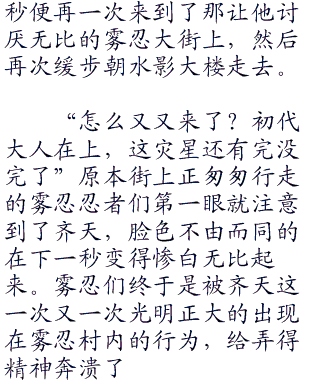 秒便再一次来到了那让他讨
厌无比的雾忍大街上，然后
再次缓步朝水影大楼走去。
“怎么又又来了？初代
大人在上，这灾星还有完没
完了”原本街上正匆匆行走
的雾忍忍者们第一眼就注意
到了齐天，脸色不由而同的
在下一秒变得惨白无比起
来。雾忍们终于是被齐天这
一次又一次光明正大的出现
在雾忍村内的行为，给弄得
精神奔溃了